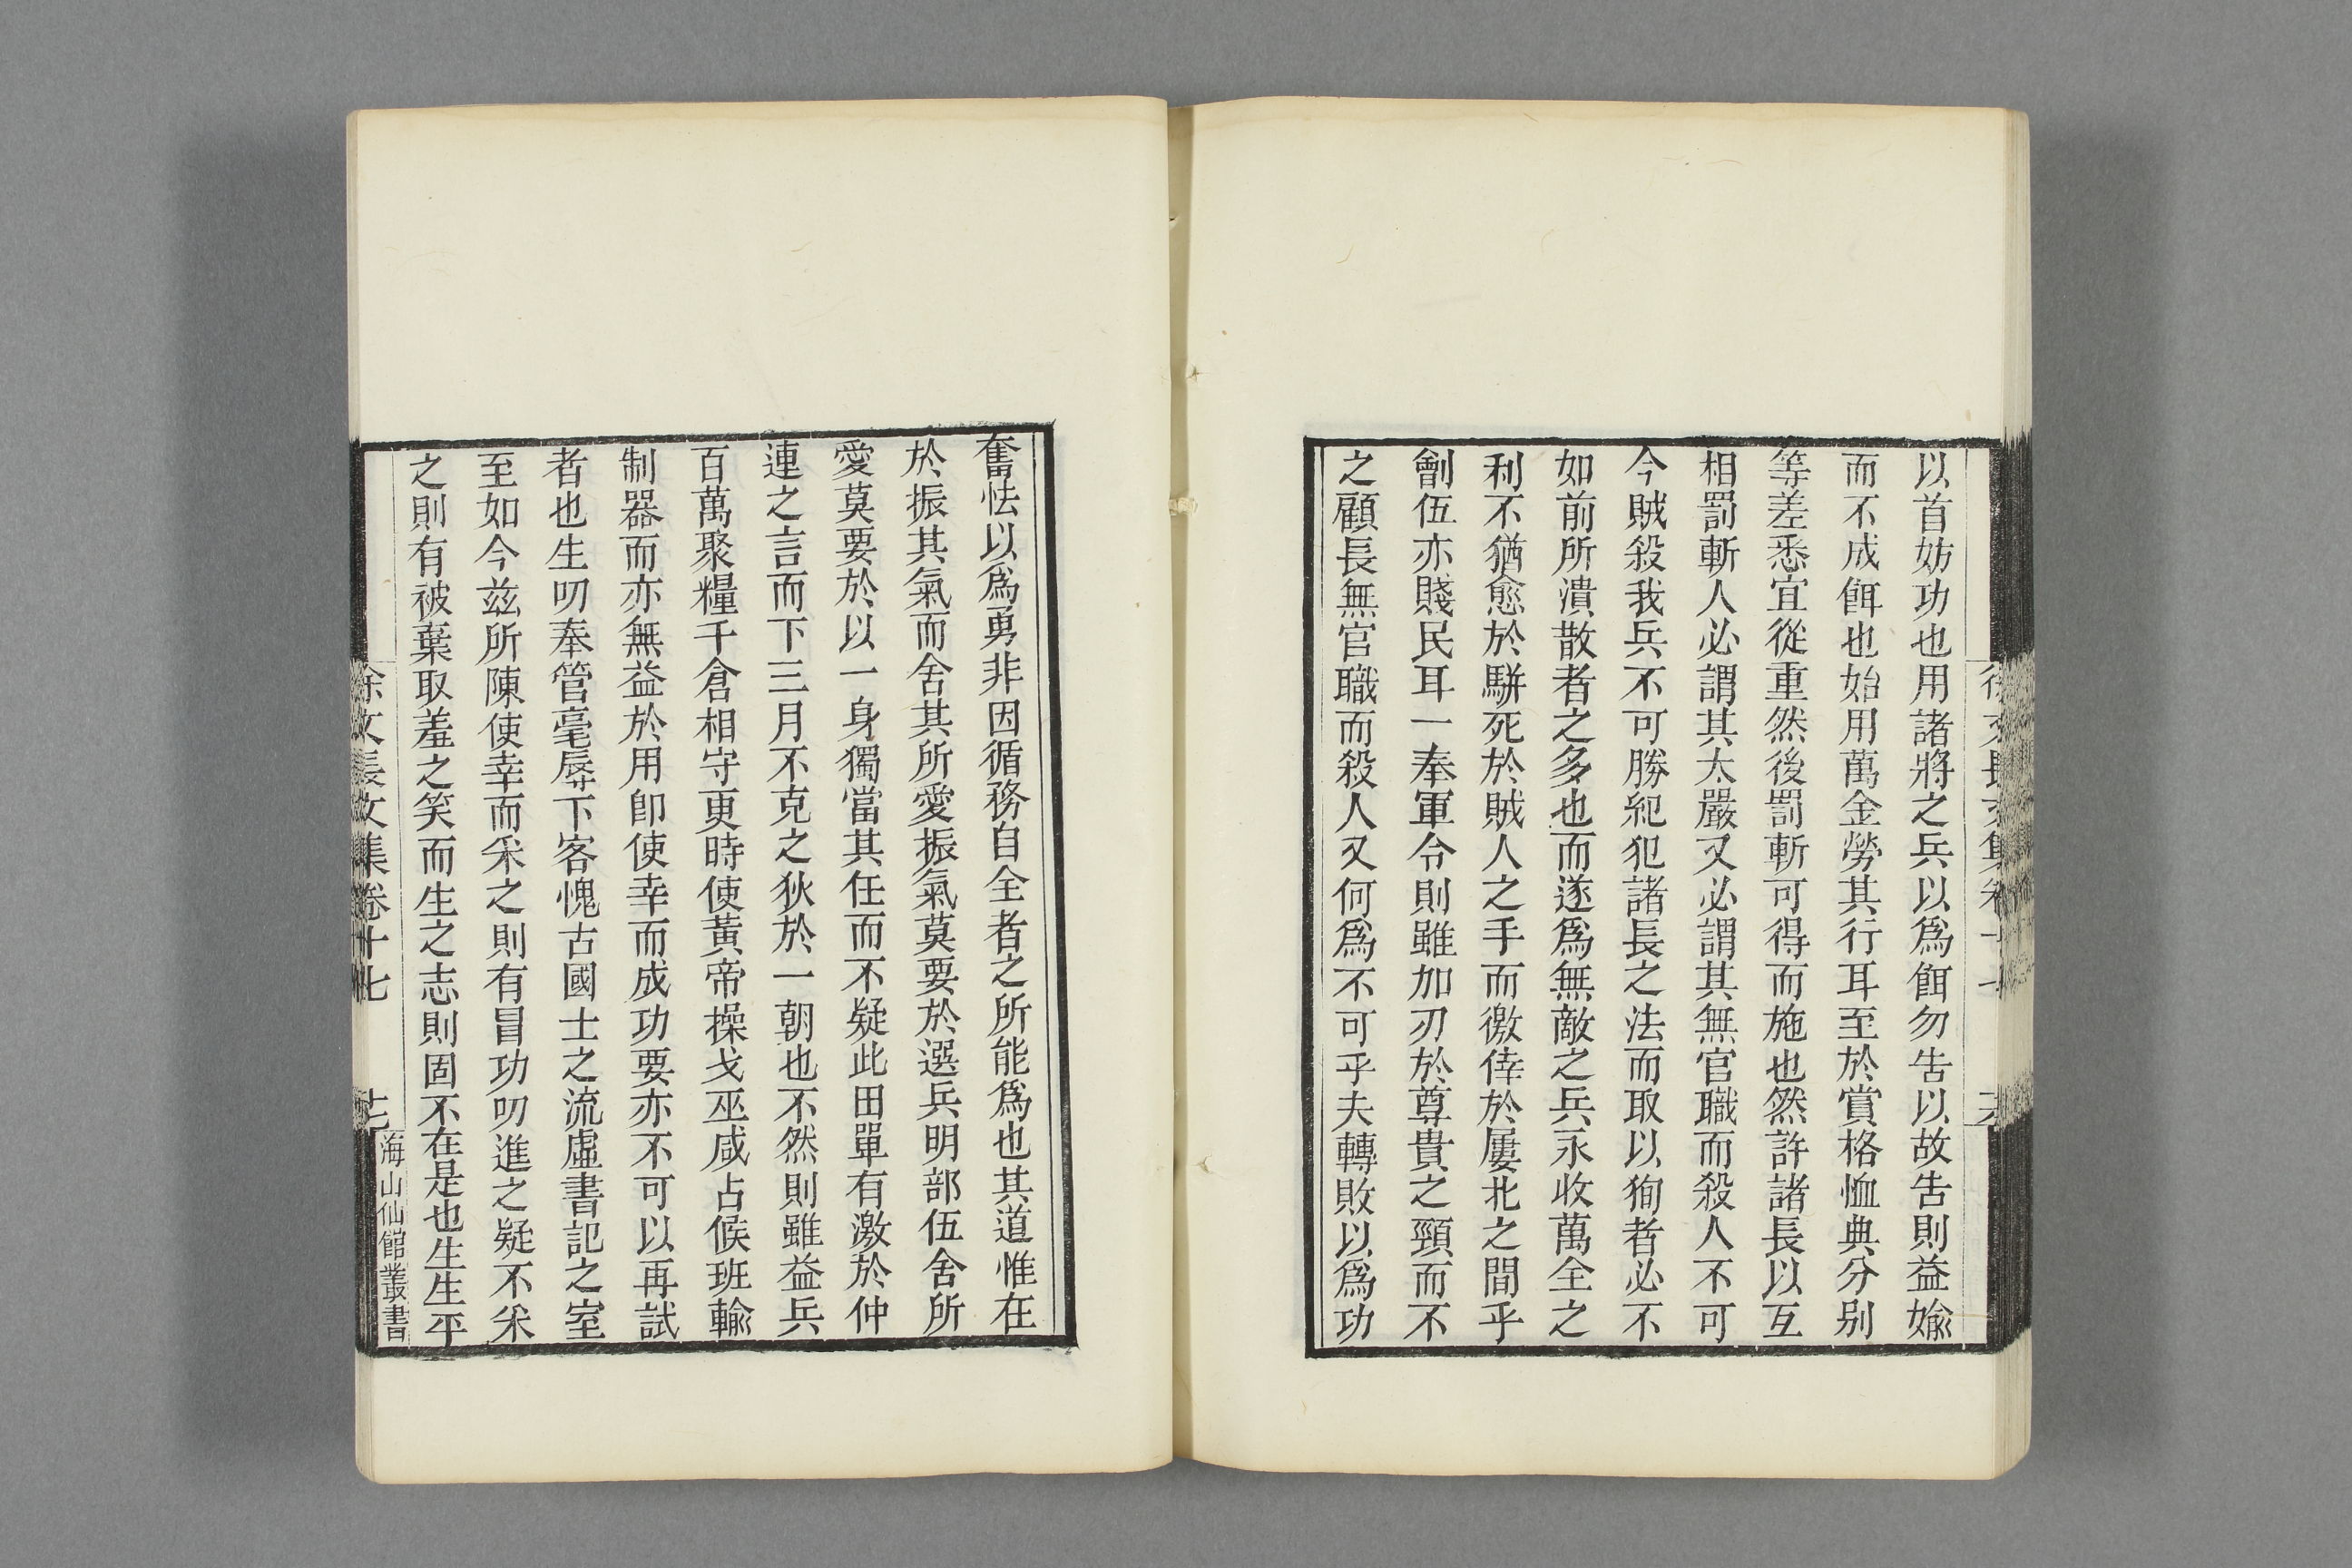 以首妨功也用諸將之兵以爲餌勿告以故告則益媮
而不成餌也始用萬金勞其行耳至於賞格恤典分别
等差悉宜從重然後罰斬可得而施也然許諸長以互
相罰斬人必謂其太嚴又必謂其無官職而殺人不可
今賊殺我兵不可勝紀犯諸長之法而取以徇者必不
如前所潰散者之多也而遂爲無敵之兵永收萬全之
利不猶愈於駢死於賊人之手而徼倖於屢北之間乎
劊伍亦賤民耳一奉軍令則雖加刃於尊貴之頸而不
之顧長無官職而殺人又何爲不可乎夫轉敗以爲功
奮怯以爲勇非因循務自全者之所能爲也其道惟在
於振其氣而舍其所愛振氣莫要於選兵明部伍舍所
愛莫要於以一身獨當其任而不疑此田單有激於仲
連之言而下三月不克之狄於一朝也不然則雖益兵
百萬聚糧千倉相守更時使黃帝操戈巫咸占候班輸
制器而亦無益於用即使幸而成功要亦不可以再試
者也生叨奉管毫辱下客愧古國士之流虛書記之室
至如今茲所陳使幸而采之則有冒功叨進之疑不采
之則有被棄取羞之笑而生之志則固不在是也生生平
徐文長文集卷十七
海山仙館叢書